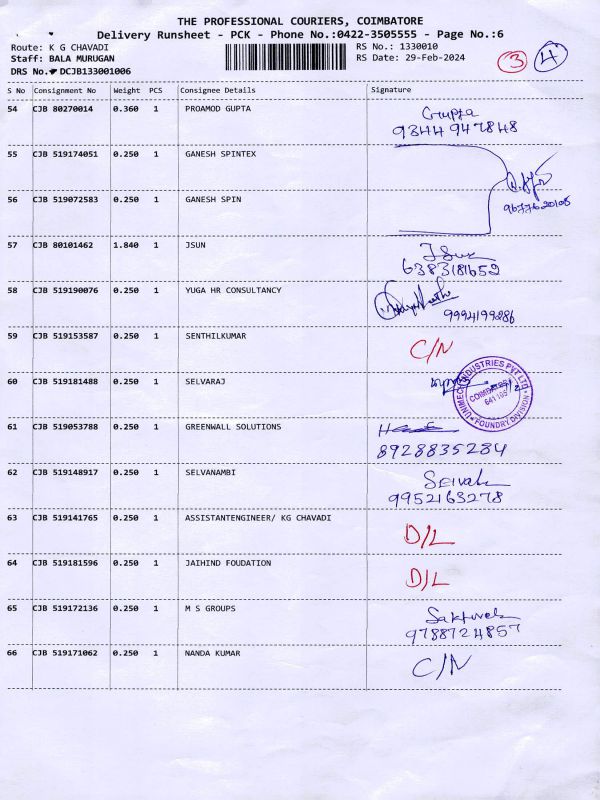 THE PROFESSIONAL COURIERS, COIMBATORE
Delivery Runsheet - PCK - Phone No.:0422-3505555 - Page No.:6
Route: K G CHAVADI
RS No.: 1330010
Staff: BALA MURUGAN
RS Date: 29-Feb-2024
DRS No. DCJB133001006
3 4
S No Consignment No Weight PCS Consignee Details Signature
54 CJB 80270014 0.360 1 PROAMOD GUPTA Gupta
9344947848
55 CJB 519174051 0.250 1 GANESH SPINTEX
56 CJB 519072583 0.250 1 GANESH SPIN
57 CJB 80101462 1.840 1 JSUN JSun
6383181652
58 CJB 519190076 0.250 1 YUGA HR CONSULTANCY
9994199286
59 CJB 519153587 0.250 1 SENTHILKUMAR C/N
60 CJB 519181488 0.250 1 SELVARAJ
UNIMECH INDUSTRIES PVT LTD
COIMBATORE
641 105
FOUNDRY DIVISION
61 CJB 519053788 0.250 1 GREENWALL SOLUTIONS
8928835284
62 CJB 519148917 0.250 1 SELVANAMBI
9952163278
63 CJB 519141765 0.250 1 ASSISTANTENGINEER/ KG CHAVADI D/L
64 CJB 519181596 0.250 1 JAIHIND FOUDATION D/L
65 CJB 519172136 0.250 1 M S GROUPS
9788724857
66 CJB 519171062 0.250 1 NANDA KUMAR C/N